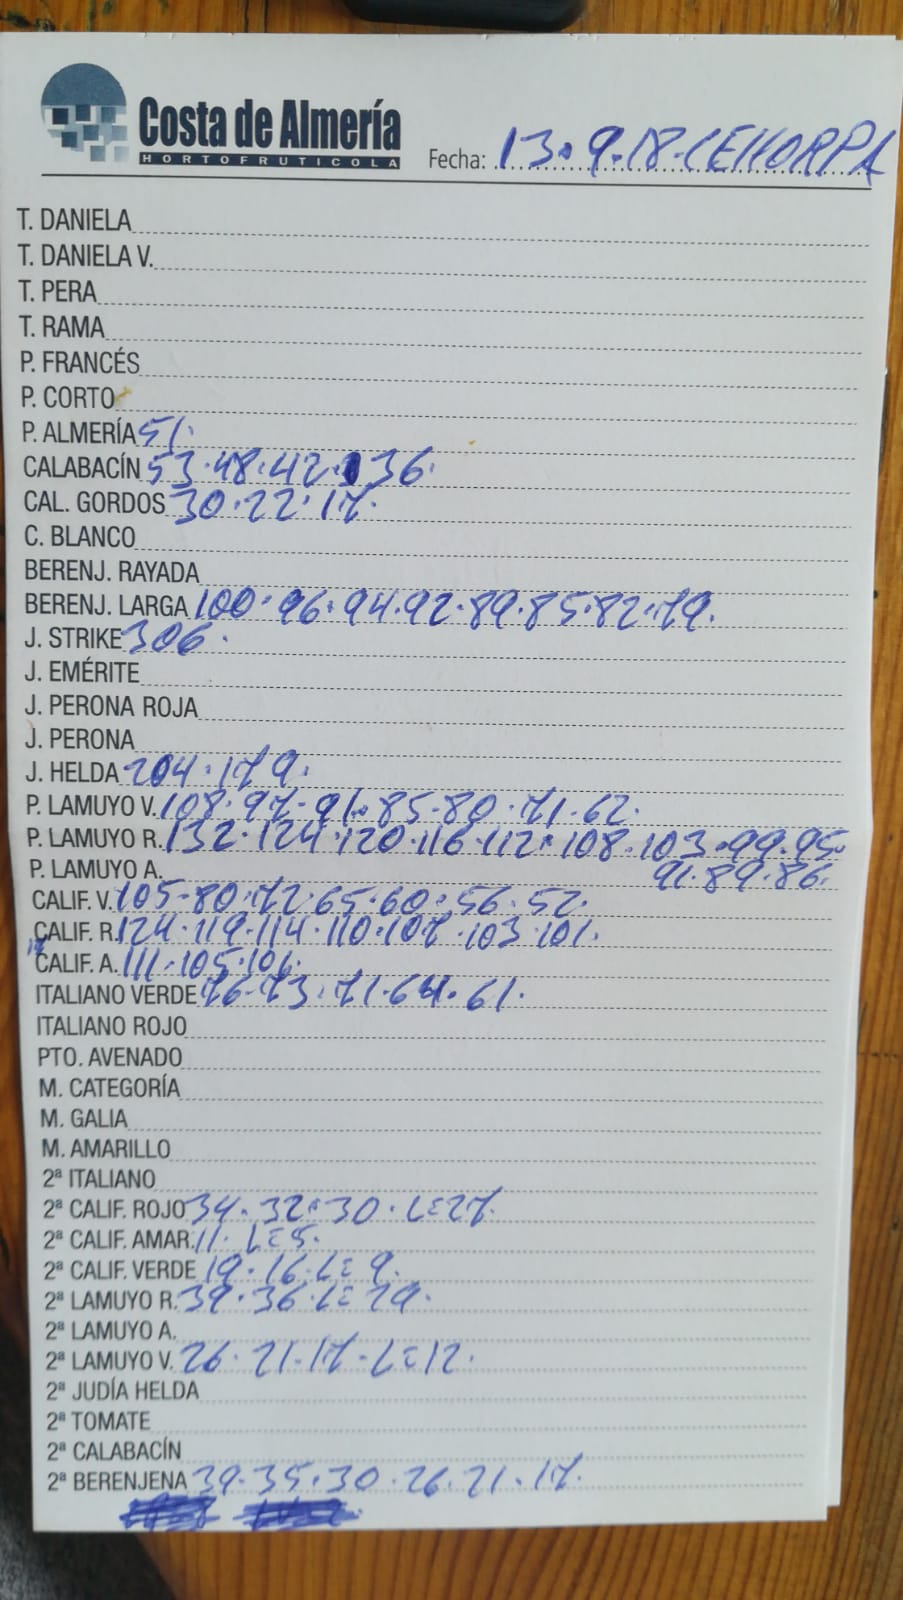 Costa de Almería
HORTOFRUTICOLA
Fecha: 13.9.18. CEHORPA
T. DANIELA
T. DANIELA V.
T. PERA
T. RAMA
P. FRANCÉS
P. CORTO
P. ALMERÍA 51.
CALABACÍN 53.48.42.36.
CAL. GORDOS 30.22.17.
C. BLANCO
BERENJ. RAYADA
BERENJ. LARGA 100.96.94.92.89.85.82.79.
J. STRIKE 306.
J. EMÉRITE
J. PERONA ROJA
J. PERONA
J. HELDA 204.179.
P. LAMUYO V. 108.97.91.85.80.71.62.
P. LAMUYO R. 132.124.120.116.112.108.103.99.95.
P. LAMUYO A. 91.89.86.
CALIF. V. 105.80.72.65.60.56.52.
CALIF. R. 124.119.114.110.107.103.101.
CALIF. A. 111.105.101.
ITALIANO VERDE 76.73.71.64.61.
ITALIANO ROJO
PTO. AVENADO
M. CATEGORÍA
M. GALIA
M. AMARILLO
2ª ITALIANO
2ª CALIF. ROJO 34.32.30.LE27.
2ª CALIF. AMAR. 11.LE5.
2ª CALIF. VERDE 19.16.LE9.
2ª LAMUYO R. 39.36.LE29.
2ª LAMUYO A.
2ª LAMUYO V. 26.21.17.LE12.
2ª JUDÍA HELDA
2ª TOMATE
2ª CALABACÍN
2ª BERENJENA 39.35.30.26.21.17.